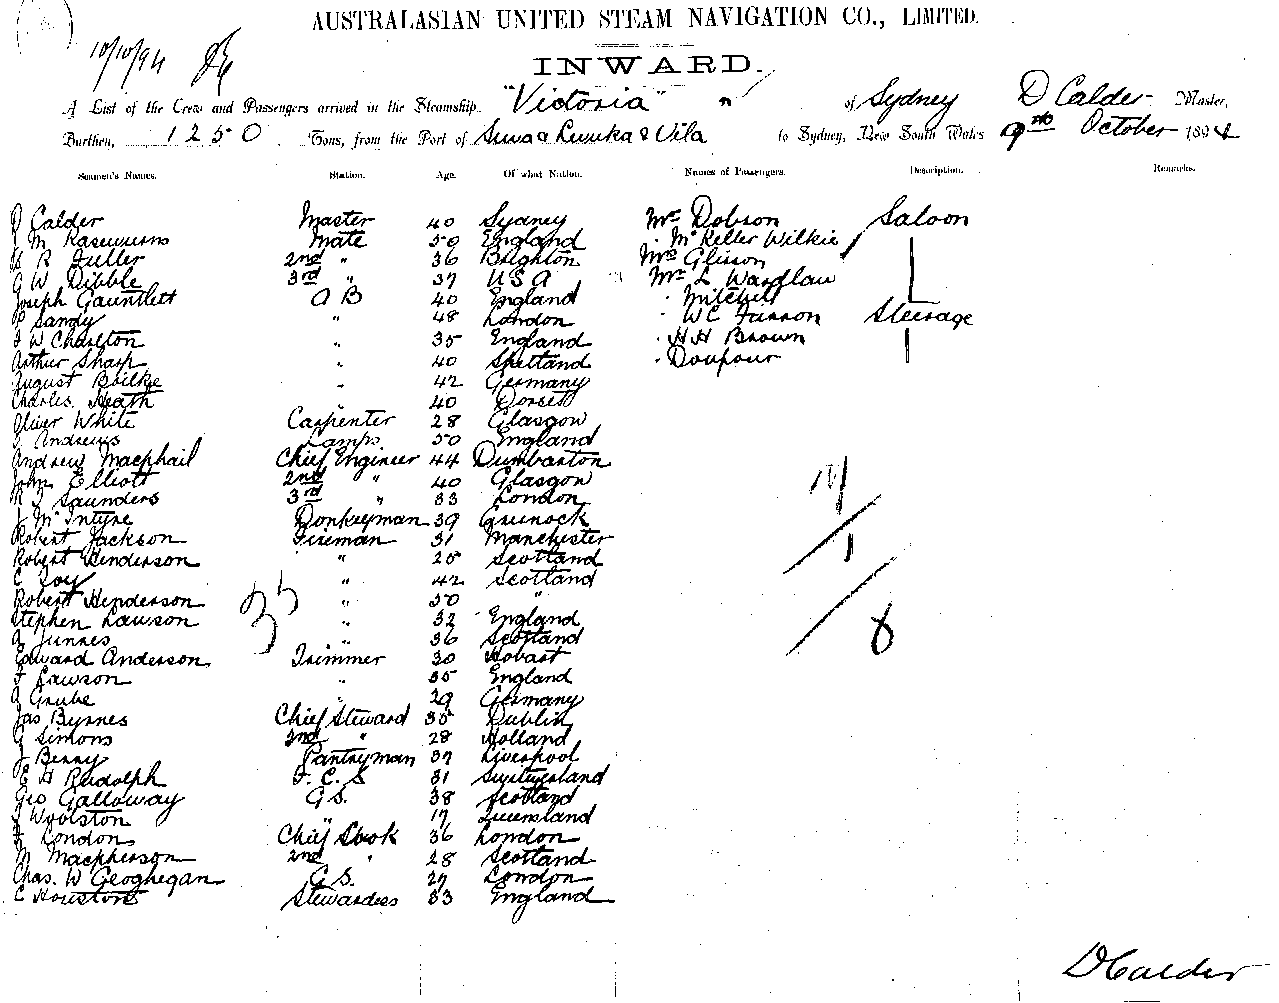 AUSTRALASIAN UNITED STEAM NAVIGATION CO., LIMITED.
10/10/94
INWARD.
A List of the Crew and Passengers arrived in the Steamship "Victoria" of Sydney D Calder Master,
Burthen, 1250 Tons, from the Port of Suva Levuka & Vila to Sydney, New South Wales 9th October 1894
Seamen's Names. Station. Age. Of what Nation. Names of Passengers. Description. Remarks.
D Calder Master 40 Sydney Mrs Dobson Saloon
J M Mate 50 England " McKeller Wilkie
H R Fuller 2nd " 36 Brighton Mrs Glisson
G W Dibble 3rd " 37 USA Mr L Wardlaw
Joseph Gauntlett A B 40 England " Mitchell
P Sandy " 48 London " W C Farron Steerage
J W Charlton " 35 England " H H Brown
Arthur Sharp " 40 Shetland "
August " 42 Germany
Charles Heath 40 Dorset
Oliver White Carpenter 28 Glasgow
J Andrews Lamps 50 England
Andrew Macphail Chief Engineer 44 Dumbarton
John Elliott 2nd " 40 Glasgow
R J Saunders 3rd " 33 London
J McIntyre Donkeyman 39 Greenock
Robert Jackson Fireman 31 Manchester
Robert Henderson " 25 Scotland
C " 42 Scotland
Robert Henderson " 50 "
Stephen Lawson " 32 England
A " 36 Scotland
Edward Anderson Trimmer 30 Hobart
F Lawson " 35 England
A Grube " 29 Germany
Jas Byrnes Chief Steward 35 Dublin
G Simons 2nd " 28 Holland
J Benny Pantryman 37 Liverpool
E H Rudolph F. C. S 31 Switzerland
Geo Galloway G S. 38 Scotland
J Woolston " 17 Queensland
F London Chief Cook 36 London
M Macpherson 2nd " 28 Scotland
Chas. W Geoghegan G S. 27 London
C Houston Stewardess 33 England
35
1
8
D Calder